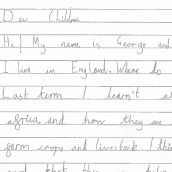 Dear Children
Hi! My name is George and
I live in England. Where do
Last term I learn't
africa and how they are
farm crops and livestock. I
and that they